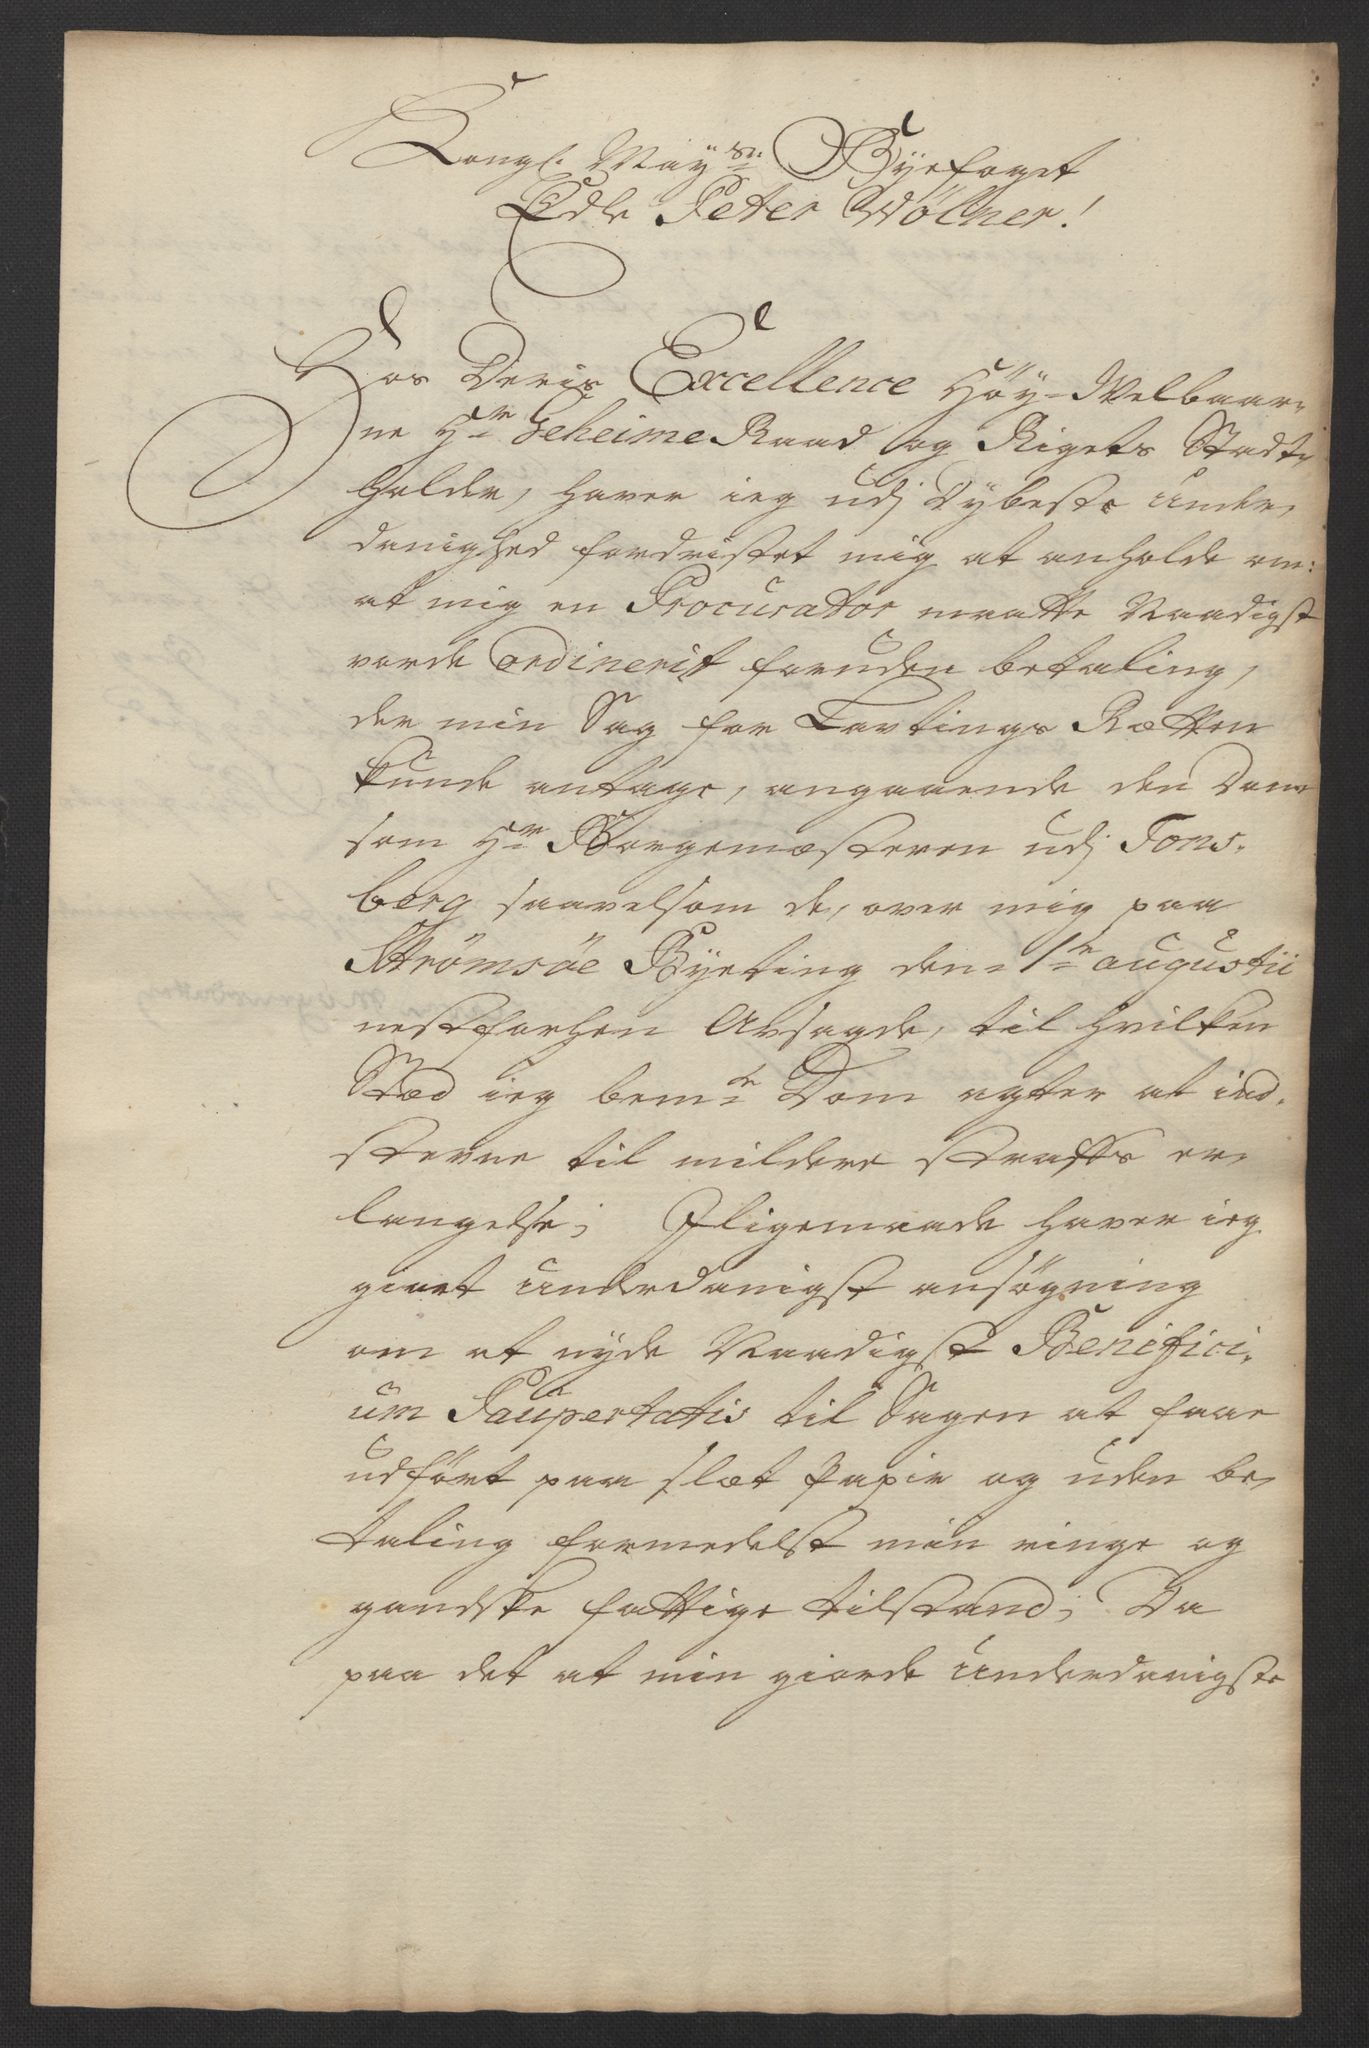 Kongl. May:ts Byefoget
Edle Peter Wölner!
Hos Deris Excellence Höy-Welbaar-
ne Hr Geheime Raad og Rigets Stadt-
holder, haver ieg udj Dybeste Under-
danighed fordristet mig at anholde om:
at mig en Procurator maatte Naadigst
vorde ordinerit foruden betaling,
der min Sag for Lavtings Rætten
kunde antage, angaaende den Dom
som Hr Borgemesteren udj Tons-
berg saavelsom de, over mig paa
Strömsöe Byeting den 1te augustii
nestforhen Afsagde, til hvilken
Stæd ieg bemte Dom agter at ind-
stevne til mildere straffs er-
langelse; Jligemaade haver ieg
givet Underdanigst ansøgning
om at nyde Naadigst Benifici-
um Paupertatis til Sagen at faae
udført paa slæt Papir og uden be-
taling formedelst min ringe og
gandske fattige tilstand; Da
paa det at min giorde Underdanigste